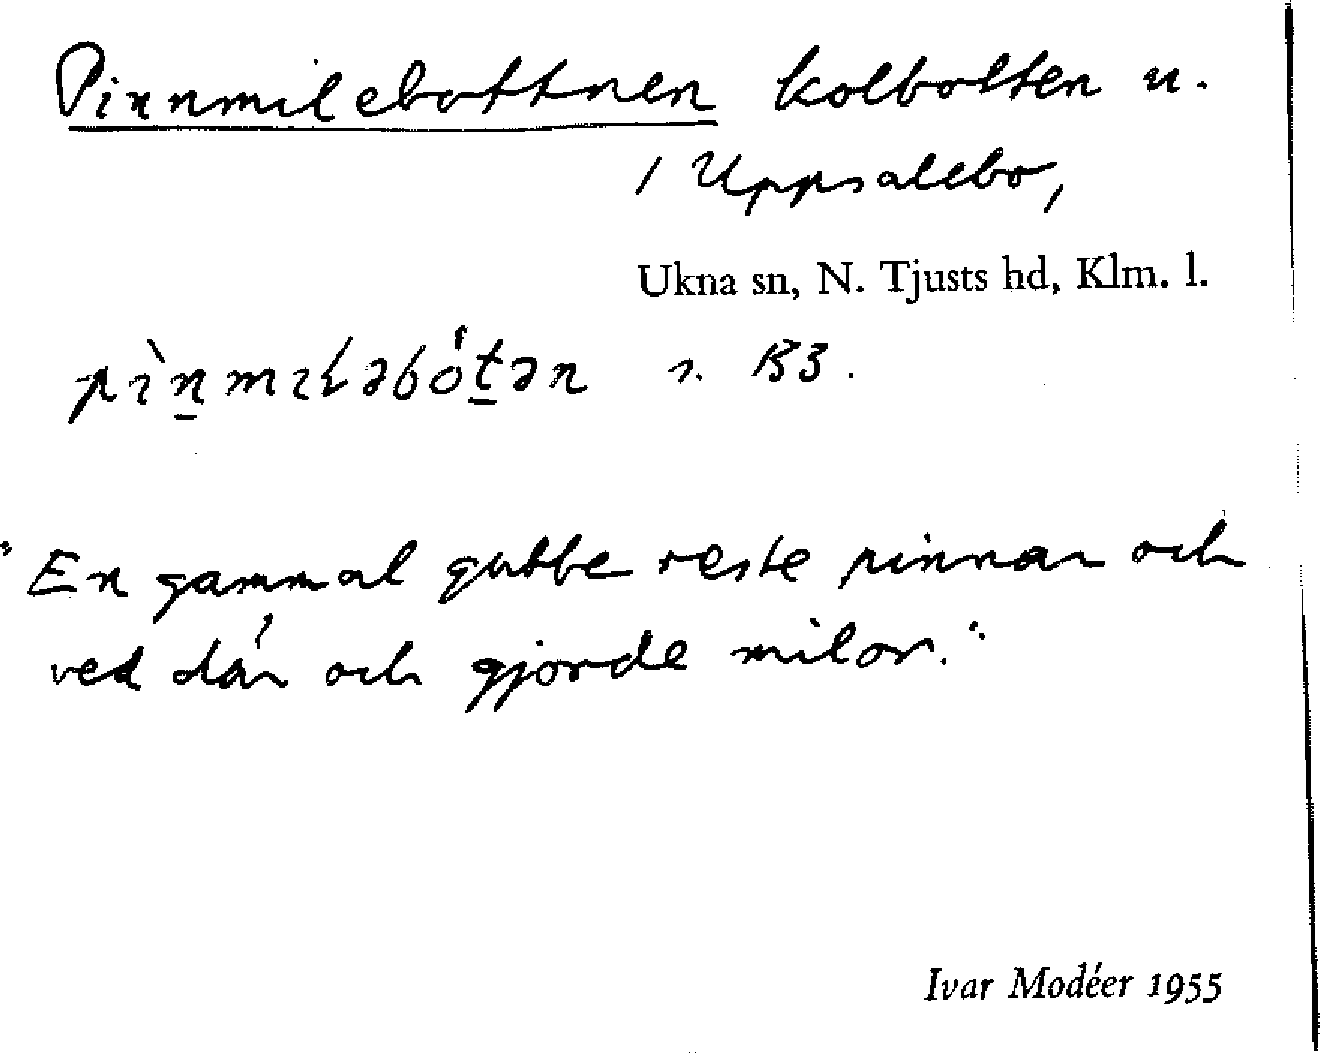 Pinnmilebottnen kolbotten u.
/ Uppsalebo,
Ukna sn, N. Tjusts hd, Klm. l.
s. B3.
"En gammal gubbe reste pinnar och
ved där och gjorde milor."
Ivar Modéer 1955